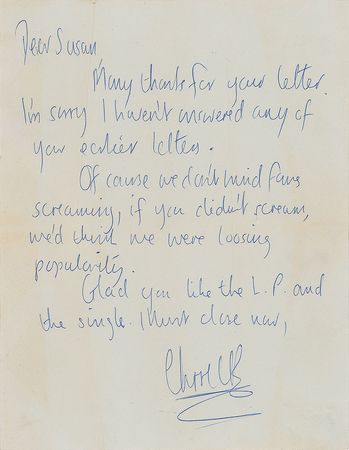 Dear Susan,
Many thanks for your letter.
I'm sorry I haven't answered any of
your earlier letters.
Of course we don't mind fans
screaming, if you didn't scream,
we'd think we were loosing
popularity.
Glad you like the L.P. and
the single. I must close now,